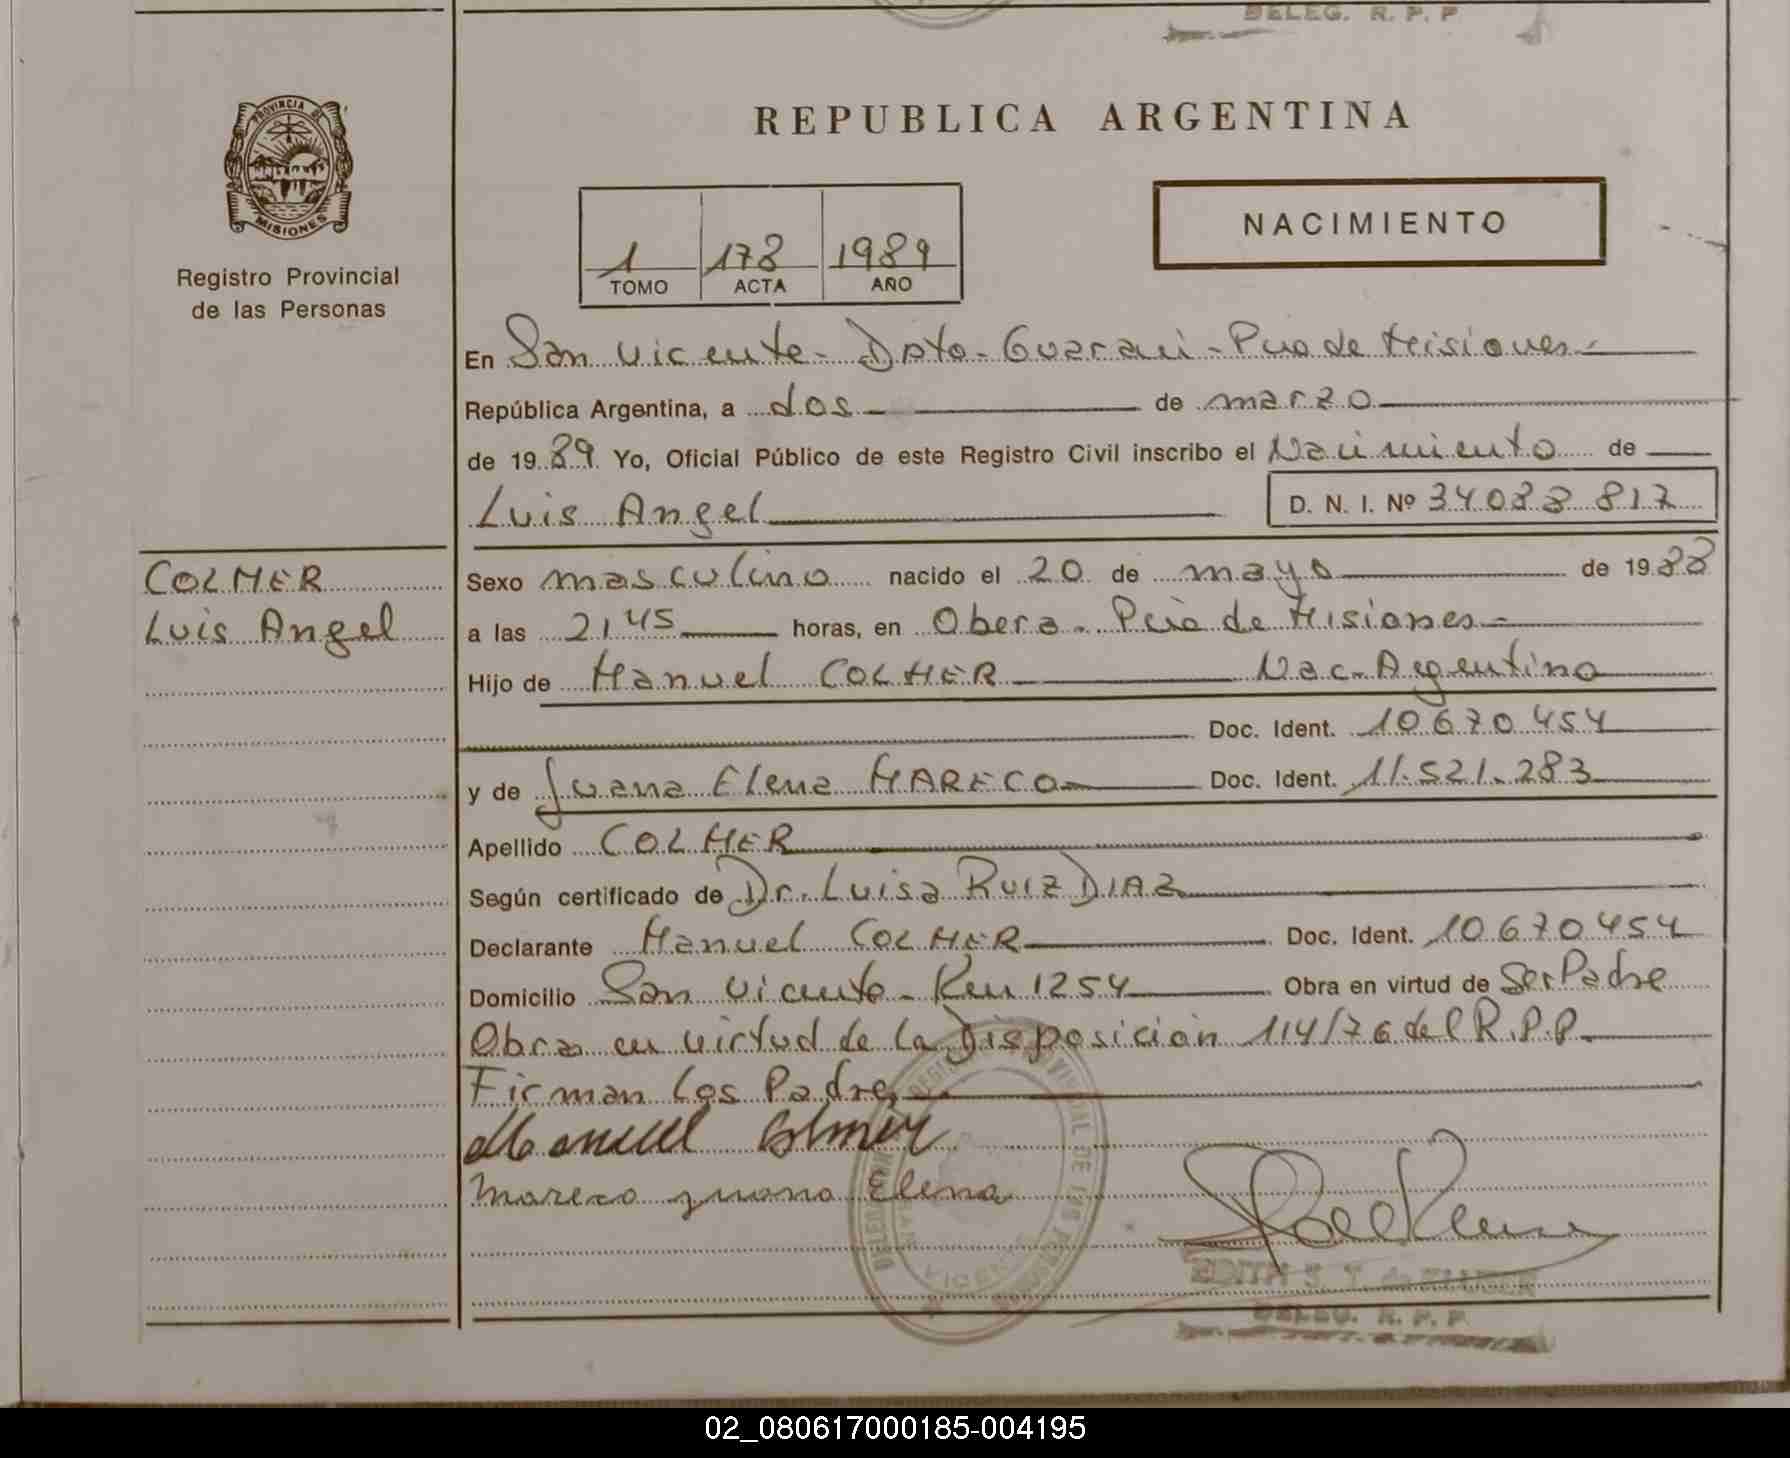 DELEG. R. P. P
PROVINCIA DE
MISIONES
Registro Provincial
de las Personas
REPUBLICA ARGENTINA
1 178 1989
TOMO ACTA AÑO
NACIMIENTO
En San Vicente - Dpto - Guarani - Pcia de Misiones -
República Argentina, a dos de marzo
de 1989 Yo, Oficial Público de este Registro Civil inscribo el Nacimiento de
Luis Angel D. N. I. Nº 34088817
COLMER
Luis Angel
Sexo masculino nacido el 20 de mayo de 1988
a las 21,45 horas, en Obera - Pcia de Misiones -
Hijo de Manuel COLMER Nac. Argentino
Doc. Ident. 10670454
y de Juana Elena MARECO Doc. Ident. 11.521.283
Apellido COLMER
Según certificado de Dr. Luisa RUIZ DIAZ
Declarante Manuel COLMER Doc. Ident. 10670454
Domicilio San Vicente - Km 1254 Obra en virtud de Ser Padre
Obra en virtud de la Disposición 114/76 del R.P.P.
Firman los Padres
Manuel Colmer
Mareco Juana Elena
EDITH S. T. de
DELEG. R. P. P
02_080617000185-004195